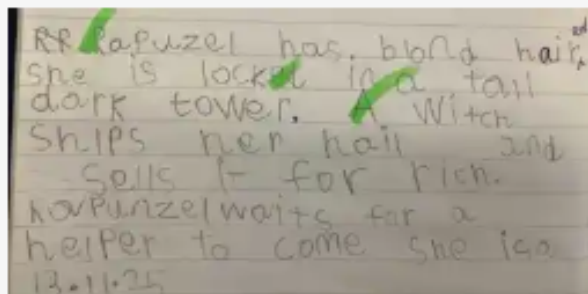 RR Rapuzel has. blond hair, and
she is locked in a tall
dark tower. A witch
Snips her hail and
sells it for rich.
Rapunzel waits for a
helper to come she is a
13.11.25